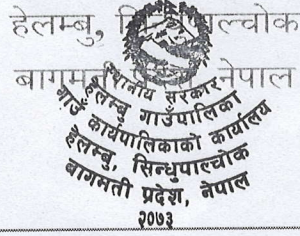 हेलम्बु, सिन्धुपाल्चोक
बागमती नेपाल
स्थानीय सरकार
हेलम्बु गाउँपालिका
गाउँ कार्यपालिकाको कार्यालय
हेलम्बु, सिन्धुपाल्चोक
बागमती प्रदेश, नेपाल
२०७३